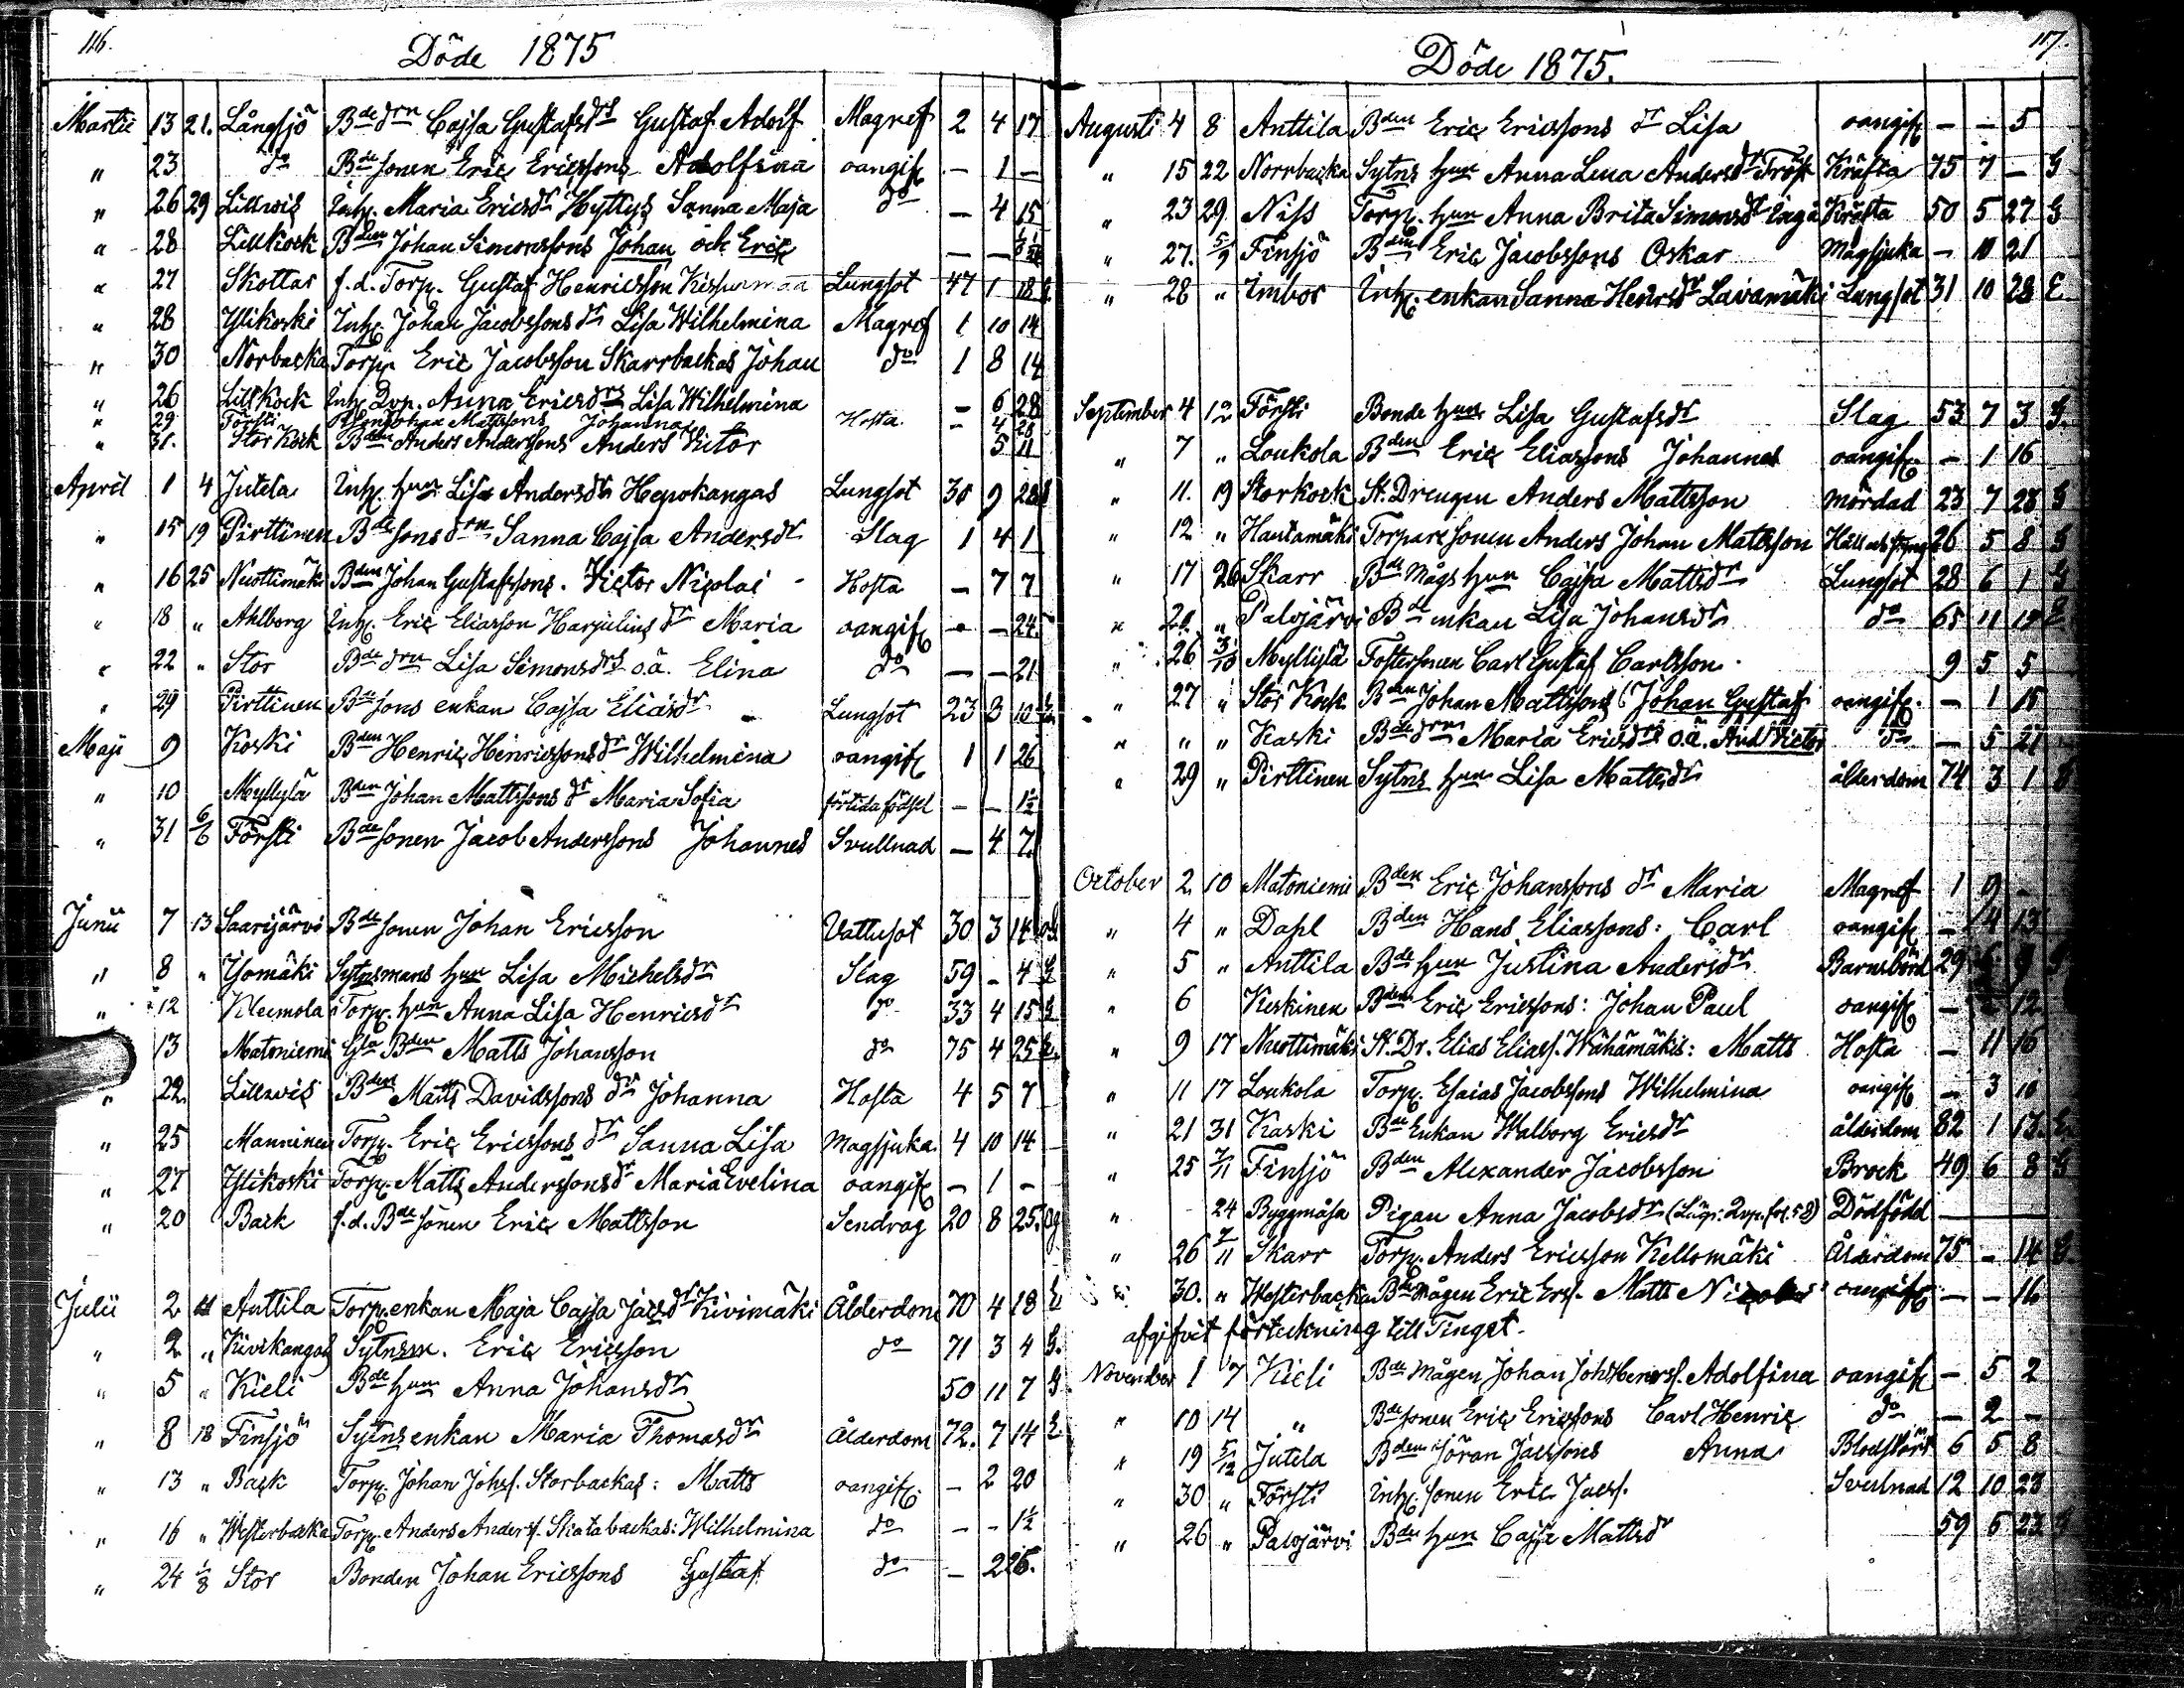 116.
Döde 1875
Martii 13 21. Långsjö Bde drn Cajsa Gustafsdrs Gustaf Adolf Magref 2 4 17
" 23 do Bde sonen Eric Ericssons Adolfina oangif. - 1 -
" 26 29 Lillwis Inh. Maria Ericsdr Hyttys Sanna Maja do - 4 15
" 28 Lillkock Bden Johan Simonssons Johan och Eric - -
" 27 Skottar f.d. Torp. Gustaf Henricsson Lungsot 47 1 18
" 28 Ylikoski Inh. Johan Jacobssons dr Lisa Wilhelmina Magref 1 10 14
" 30 Norbacka Torp. Eric Jacobsson Skarrbackas Johan do 1 8 14
" 26 Lillkock Inh. Dvp. Anna Ericsdrs Lisa Wilhelmina - 6 28
" 29 Försti Bden Johan Mattssons Johanna Hosta - 4 28
" 31. Storkock Bden Anders Anderssons Anders Victor 5 11
April 1 4 Jutila Inh. hun Lisa Andersdr Hepokangas Lungsot 30 9 28
" 15 19 Pirttinen Bde sons drn Sanna Cajsa Andersdr Slag 1 4 1
" 16 25 Nuottimäki Bden Johan Gustafssons. Victor Nicolai - Hosta - 7 7
" 18 " Ahlborg Inh. Eric Eliasson Harjulins dr Maria oangif. - - 24.
" 22 " Stor Bde drn Lisa Simonsdrs o.ä. Elina do - - 21
" 29 Pirttinen Bde sons enkan Cajsa Eliasdr Lungsot 23 3
Maji 9 Koski Bden Henric Henricssons dr Wilhelmina oangif. 1 1 26
" 10 Myllylä Bden Johan Mattssons dr Maria Sofia förtida födsel - - 1½
" 31 6/6 Försti Bde sonen Jacob Anderssons Johannes Svullnad - 4 7.
Junii 7 13 Saarijärvi Bde sonen Johan Ericsson Vattusot 30 3 14 og
" 8 " Isomäki Sytnsmans hun Lisa Michelsdr Slag 59 - 4 G
" 12 Kleemola Torp. hun Anna Lisa Henricsdr do 33 4 15 G
13 Matoniemi Gla Bden Matts Johansson do 75 4 25
" 22. Lillwis Bden Matts Davidssons dr Johanna Hosta 4 5 7
" 25 Manninen Torp. Eric Ericssons dr Sanna Lisa Magsjuka 4 10 14
" 27 Ylikoski Torp. Matts Anderssons dr Maria Evelina oangif. - 1 -
" 20 Back f.d. Bde sonen Eric Mattsson Sendrag 20 8 25. og
Julii 2 11 Anttila Torp. enkan Maja Cajsa Jacsdr Kivimäki Ålderdom 70 4 18 E
" 2 " Kivikangas Sytnsm. Eric Ericsson do 71 3 4 G.
" 5 " Kieli Bde hun Anna Johansdr 50 11 7 G
" 8 18 Finsjö Sytns enkan Maria Thomasdr Ålderdom 72. 7 14 E.
" 13 " Back Torp. Johan Johss. Storbackas: Matts oangif. - 2 20
" 16 " Westerbacka Torp. Anders Anderss. Skatabackas: Wilhelmina do - - 1½
" 24 1/8 Stor Bonden Johan Ericssons Gustaf do - 2 26.
117.
Döde 1875.
Augusti 4 8 Anttila Bden Eric Ericssons dr Lisa oangif. - - 5
" 15 22 Norrbacka Sytns hun Anna Lena Andersdr Kräfta 75 7 - G
" 23 29. Niss Torp. hun Anna Brita Simonsdr Kräfta 50 5 27 G
" 27. 5/9 Finsjö Bden Eric Jacobssons Oskar Magsjuka - 10 21
" 28 " Imbor Inh. enkan Sanna Henrsdr Laivamäki Lungsot 31 10 28 E
September 4 12 Försti Bonde hun Lisa Gustafsdr Slag 53 7 3 G.
" 7 " Loukola Bden Eric Eliassons Johannes oangif. - 1 16
" 11. 19 Storkock St. Drengen Anders Mattsson mördad 23 7 28 G
" 12 " Hautamäki Torpare sonen Anders Johan Mattsson 26 5 8 G
" 17 26 Skarr Bde mågs hun Cajsa Mattsdr Lungsot 28 6 1 G
" 20. " Palojärvi Bde enkan Lisa Johansdr do 65 11 E
" 26 3/10 Myllylä Fostersonen Carl Gustaf Carlsson. 9 5 5
" 27 " Stor Kock Bden Johan Mattssons Johan Gustaf oangif. - 1 15
" " " Kaski Bde drn Maria Ericsdrs o.ä. And. Victor do - 5 21
" 29 " Pirttinen Sytns hun Lisa Mattsdr ålderdom 74 3 1
October 2. 10 Matoniemi Bden Eric Johanssons dr Maria Magref 1 9 -
" 4 " Dahl Bden Hans Eliassons: Carl oangif. - 4 13
" 5 " Anttila Bde hun Justina Andersdr Barnsbörd 29 9
" 6 Keskinen Bden Eric Ericssons: Johan Paul oangif. - 12
" 9 17 Nuottimäki St. Dr. Elias Eliass. Wähämäkis: Matts Hosta - 11 16
" 11 17 Loukola Torp. Esaias Jacobssons Wilhelmina oangif. - 3 10
" 21 31 Kaski Bde Enkan Walborg Ericsdr ålderdom 82 1 13.
" 25 7/11 Finsjö Bden Alexander Jacobsson Brock 49 6 8 G
" 24 Byggmäsa Pigan Anna Jacobsdr Dödfödd
" 26 7/11 Skarr Torp. Anders Ericsson Kellomäki Ålderdom 75 - 14 G
30. " Westerbacka Bde mågen Eric Erss. Matts oangif. - - 16
afgifvit förteckning till Tinget.
November 1 7 Kieli Bde mågen Johan Joh. Henrss. Adolfina oangif. - 5 2
" 10 14 " Bde sonen Eric Ericssons Carl Henric do - 2 -
" 19 5/12 Jutila Bden Jöran Jacssons Anna 6 5 8
" 30 " Försti Inh. sonen Eric Jacss. Svulnad 12 10 23
" 26 " Palojärvi Bde hun Cajsa Mattsdr 59 6 23 G